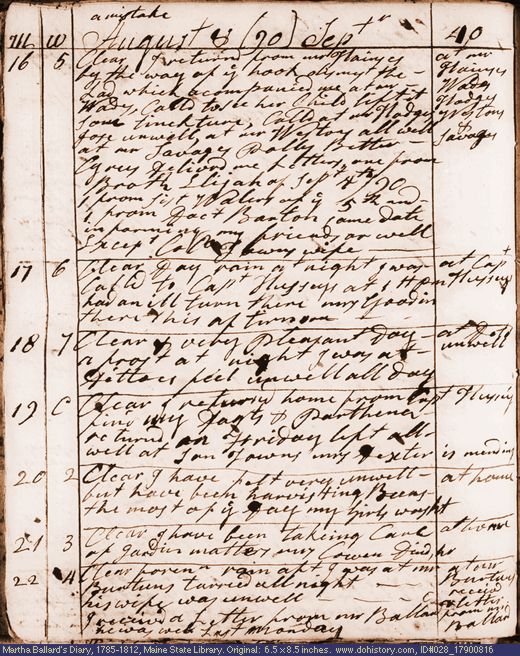 a mistake
m w August & (90) Sept r 40
16 5 Clear I returned from mr Haines at mr
by the way of ye hook Haines
which accompanied me at mr Wads
Wads, Calld to see her Child left it Hodges
some tincture, Calld at mr Hodges Westons
unwell, at mr Westons all well &
at mr Savages Polly Better Savages
Cyrus Deliverd me letters, one from
Broth Elijah of Sept 90
1 from Sist Waters of ye 5th and
1 from Doct Barton Same date
informing my friends are well
Except Cal wife
17 6 Clear Day rain at night I was at Capt
Calld to Capt Husseys at 1 Husseys
had an ill turn there mrs Goodin
there this afternoon
18 7 Clear & very Pleasant Day at Do
a frost at night I was at unwell
Dittoes feel unwell all Day
19 C Clear I returned home from Capt Husseys
find my &amp; Parthena
returned on Friday left all
well at Son Towns mrs Dexter is mending
20 2 Clear I have felt very unwell at home
but have been harvisting Beens
the most of ye Day my Girls washt
21 3 Clear I have been taking Care at home
of gardin matters mrs Cowen Died,
22 4 Clear foren n rain aft I was at mr at mr
Burtuns tarried all night Burtuns
his wife was unwell receivd
I receivd a Letter from mr Ballard a letter from mr
he was well last Monday Ballard
Martha Ballard's Diary, 1785-1812, Maine State Library. Original: 6.5 x 8.5 inches. www.dohistory.com, ID#028_17900816